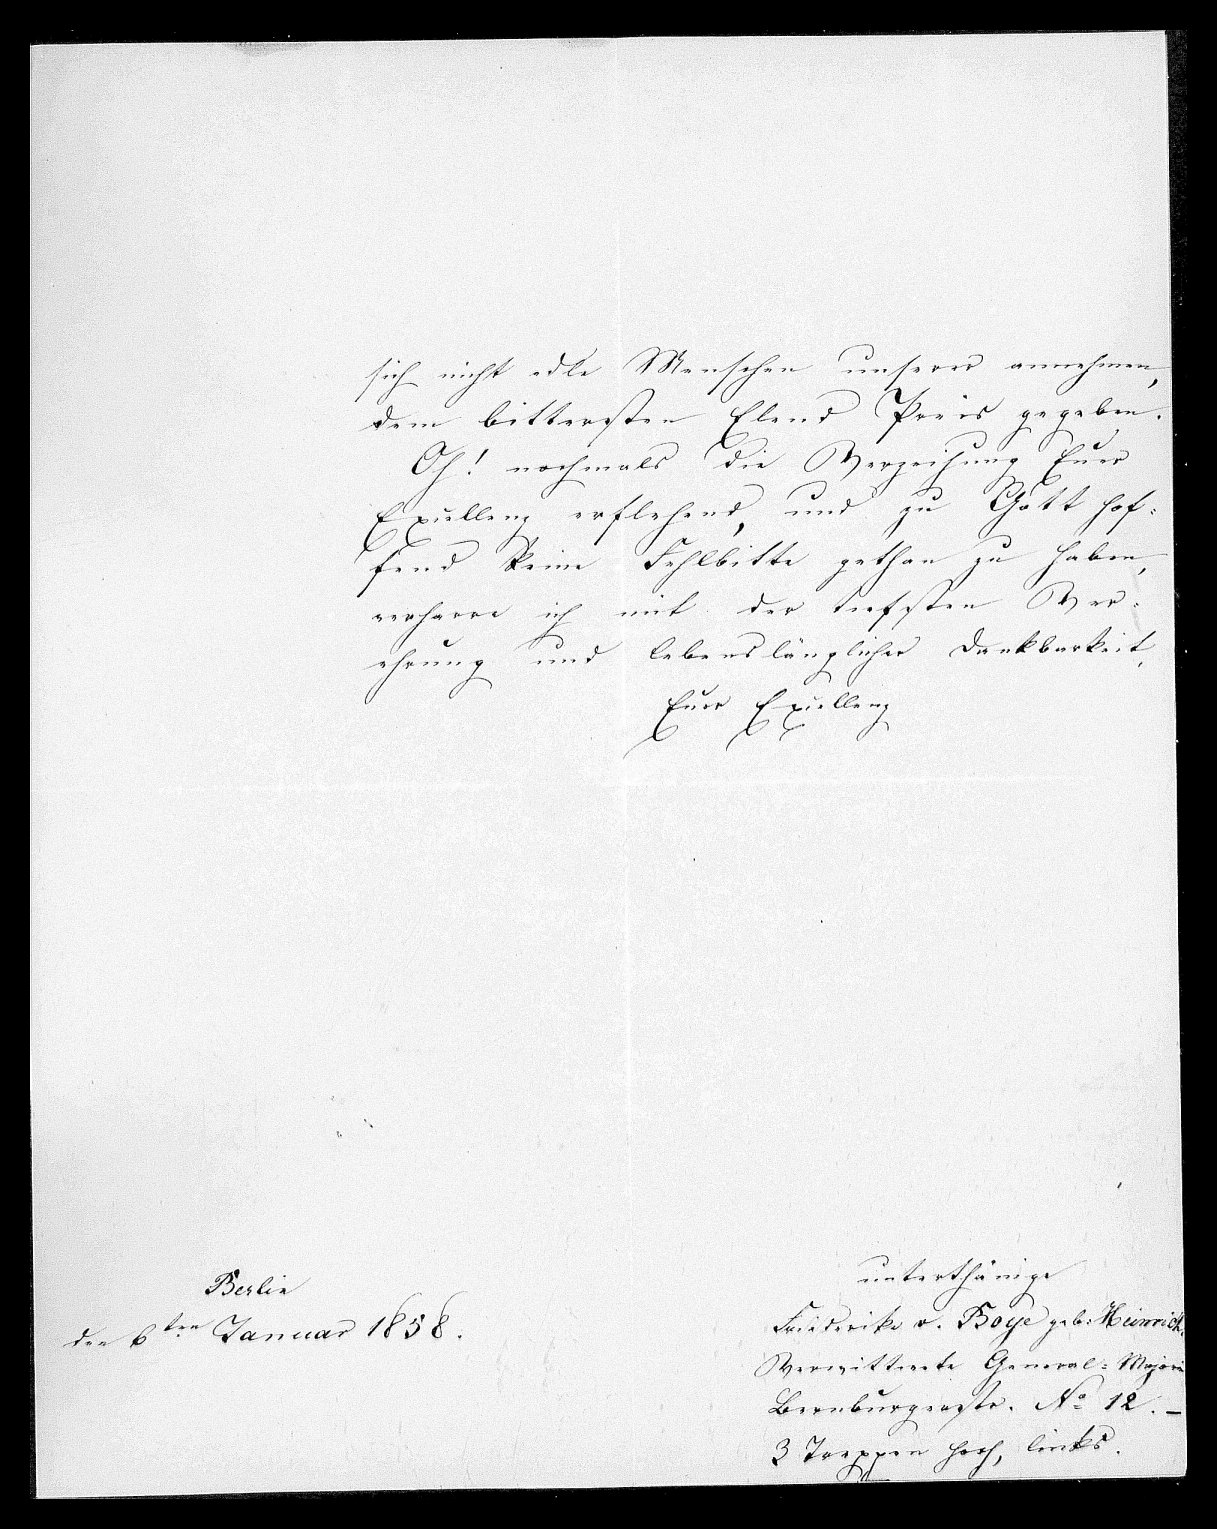 sich nicht edle Menschen unserer annehmen,
dem bittersten Elend Preis gegeben.
Oh! nochmals die Verzeihung Euer
Exzellenz erflehend, und zu Gott hof-
fend keine Fehlbitte gethan zu haben,
verharre ich mit der tiefsten Ver-
ehrung und lebenslänglicher Dankbarkeit,
Euer Exzellenz
unterthänige
Friederike v. Boye geb: Heinrich.
Verwittwete General-Majorin
Bernburgerstr. No 12. –
3 Treppen hoch, links.
Berlin
den 6ten Januar 1858.